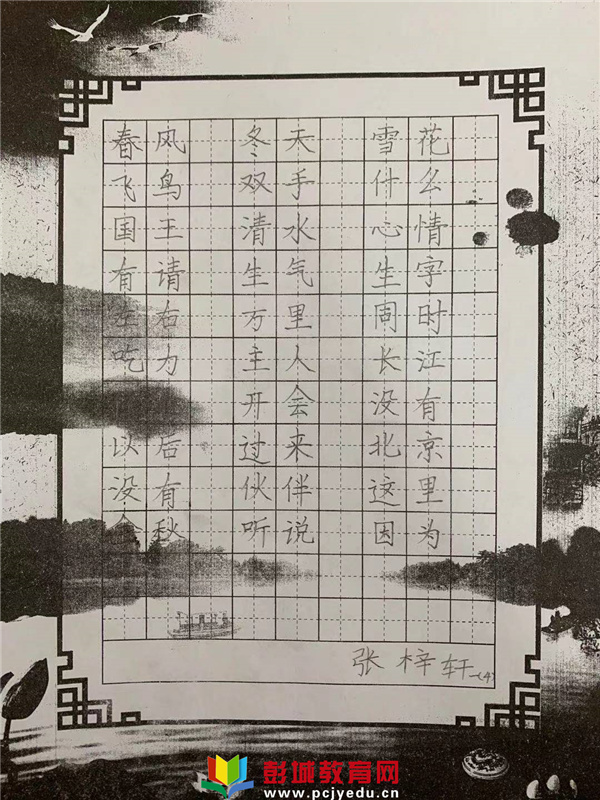 春风 冬天 雪花
飞鸟 双手 什么
国王 清水 心情
有请 生气 生字
左右 万里 同时
吃力 主人 长江
开会 没有
以后 过来 北京
没有 伙伴 这里
金秋 听说 因为
张梓轩 一(4)
彭城教育网
www.pcjyedu.cn